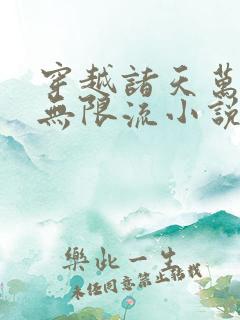 穿越諸天萬
無限流小説
樂此一生
未經同意禁止轉載